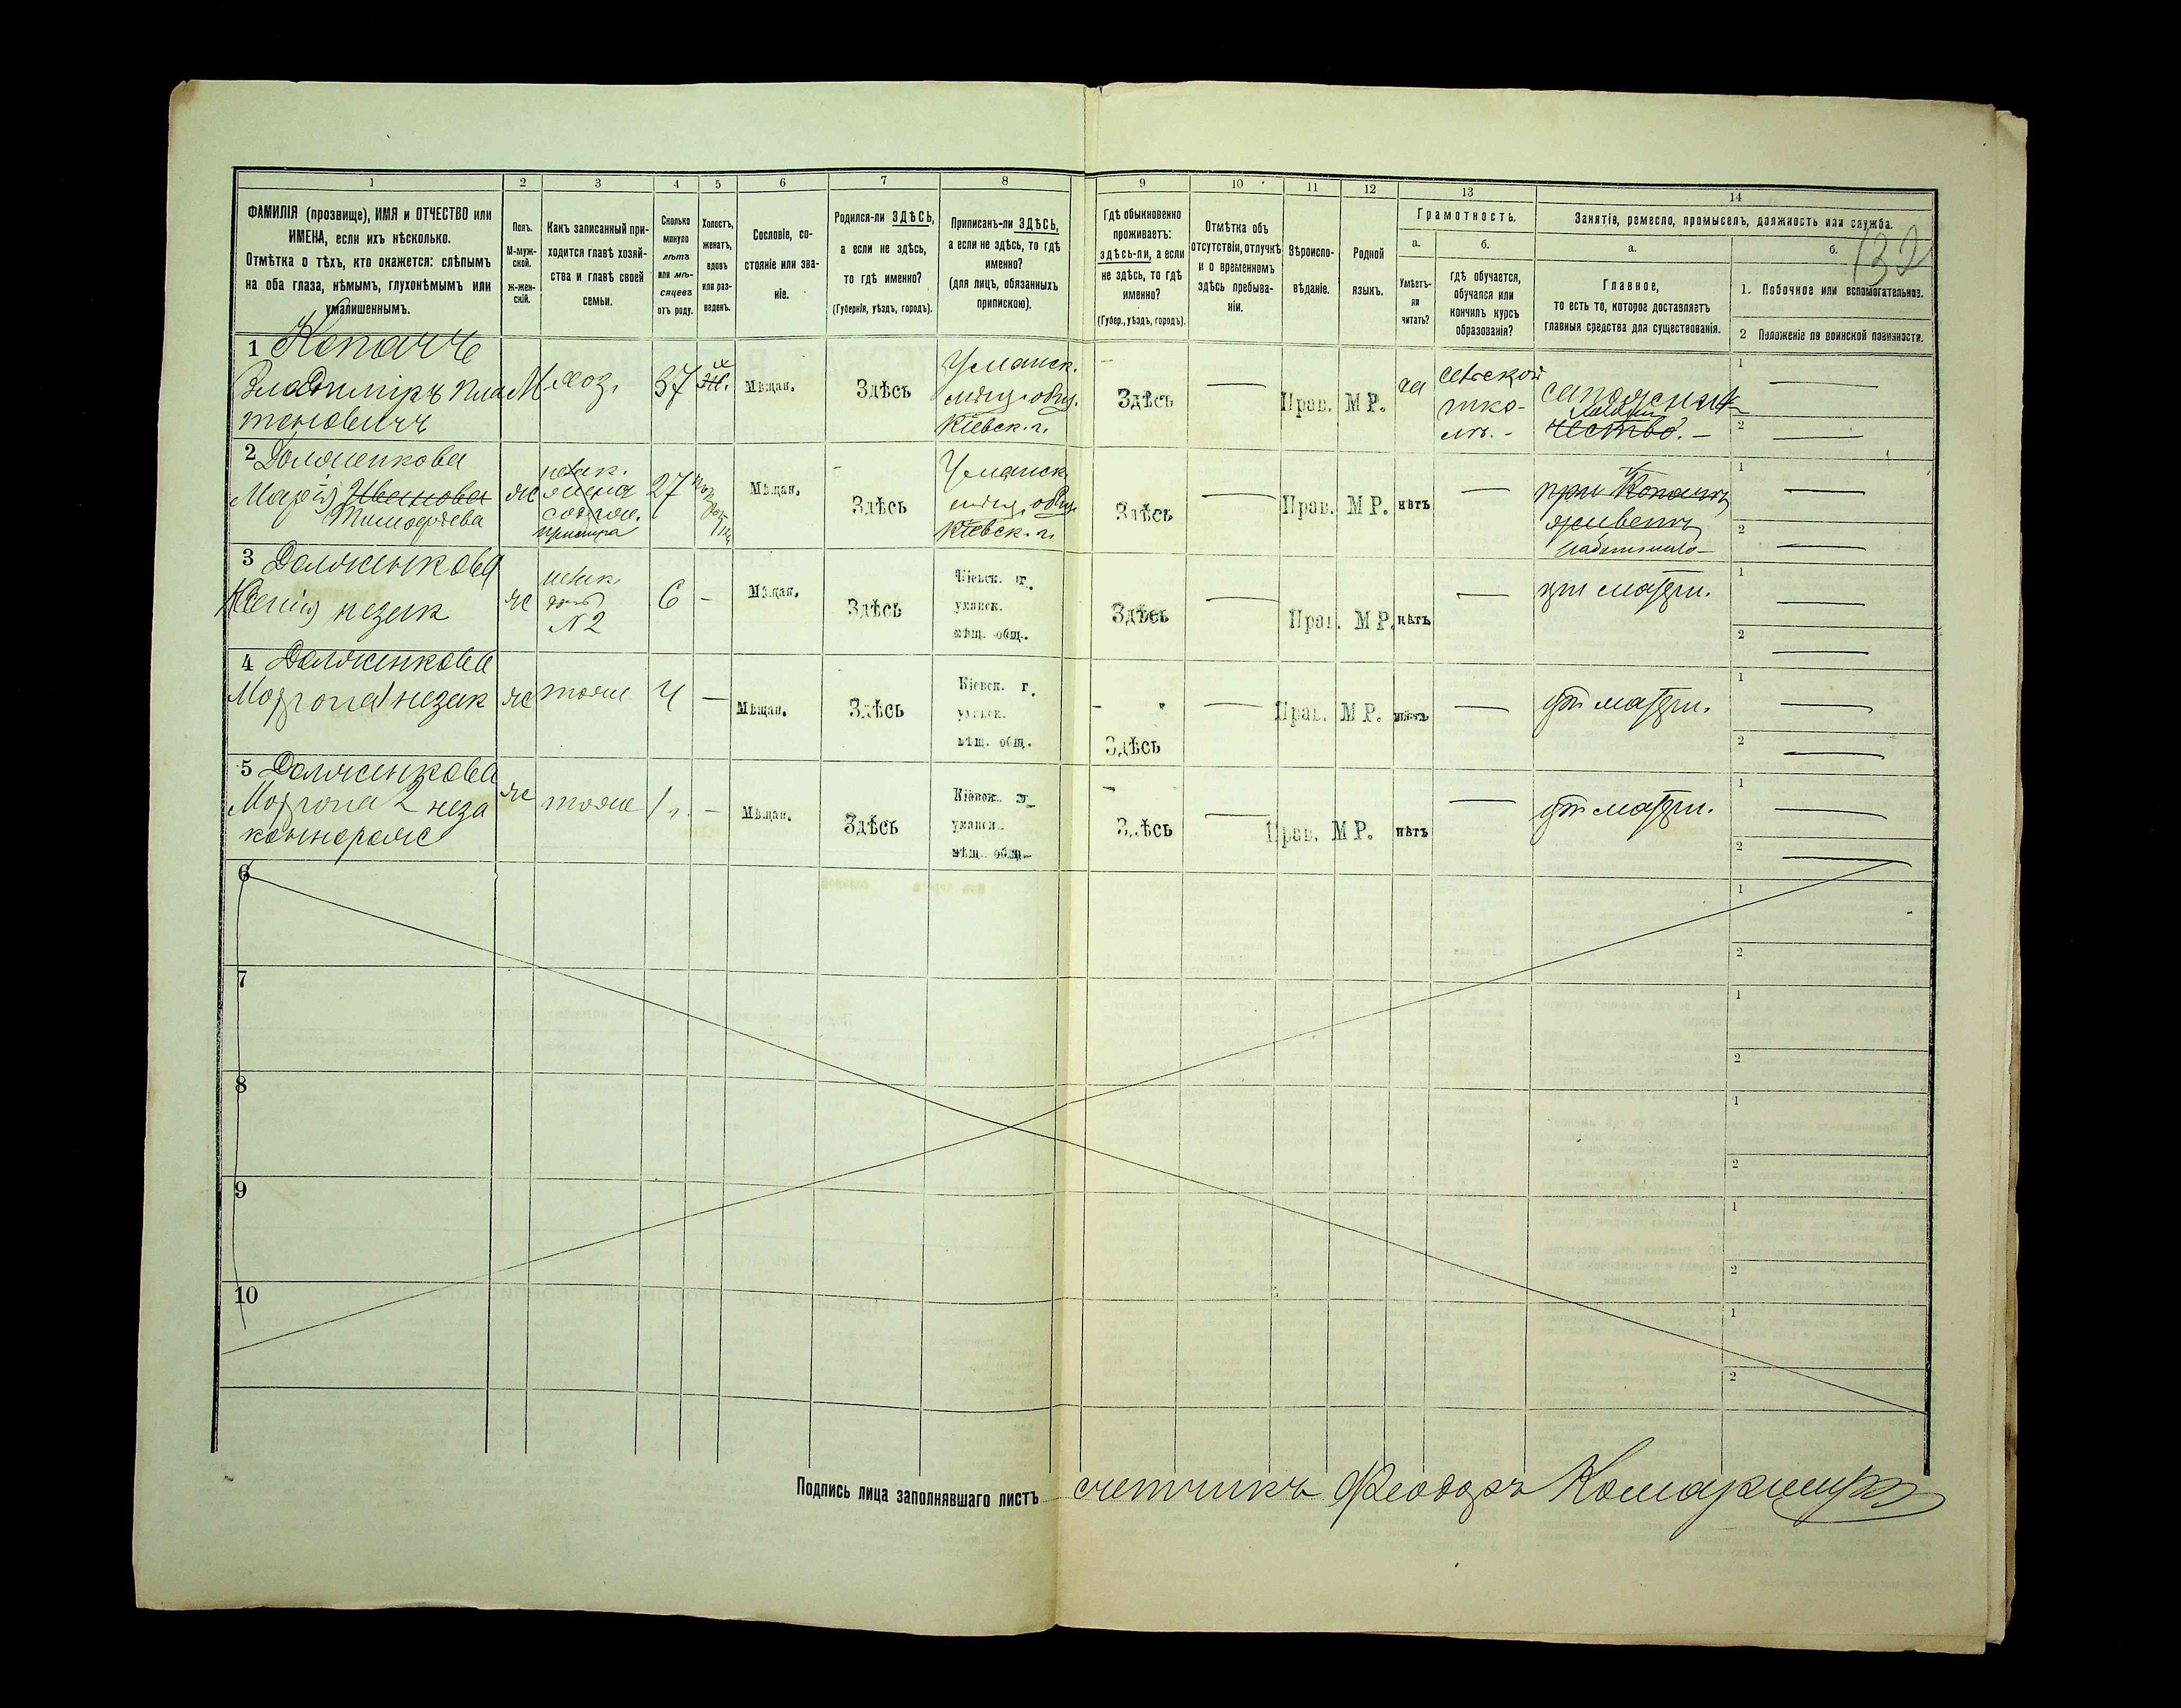 1 2 3 4 5 6 7 8 9 10 11 12 13 14
ФАМИЛІЯ (прозвище), ИМЯ и ОТЧЕСТВО или
ИМЕНА, если ихъ нѣсколько.
Отмѣтка о тѣхъ, кто окажется: слѣпымъ
на оба глаза, нѣмымъ, глухонѣмымъ или
умалишеннымъ.
Полъ.
М-муж-
ской.
ж-жен-
скій.
Какъ записанный при-
ходится главѣ хозяй-
ства и главѣ своей
семьи.
Сколько
минуло
лѣтъ
или мѣ-
сяцевъ
отъ роду.
Холостъ,
женатъ,
вдовъ
или раз-
веденъ.
Сословіе, со-
стояніе или зва-
ніе.
Родился-ли ЗДѢСЬ,
а если не здѣсь,
то гдѣ именно?
(Губернія, уѣздъ, городъ).
Приписанъ-ли ЗДѢСЬ,
а если не здѣсь, то гдѣ
именно?
(для лицъ, обязанныхъ
припискою).
Гдѣ обыкновенно
проживаетъ:
здѣсь-ли, а если
не здѣсь, то гдѣ
именно?
(Губер., уѣздъ, городъ).
Отмѣтка объ
отсутствіи, отлучкѣ
и о временномъ
здѣсь пребыва-
ніи.
Вѣроиспо-
вѣданіе.
Родной
языкъ.
Грамотность.
а.
Умѣетъ-
ли
читать?
б.
гдѣ обучается,
обучался или
кончилъ курсъ
образованія?
Занятія, ремесло, промыселъ, должность или служба.
а.
Главное,
то есть то, которое доставляетъ
главныя средства для существованія.
б.
132
1. Побочное или вспомогательное.
2 Положеніе по воинской повинности.
1 Копачъ
Владиміръ Пла
тоновичъ
М
хоз.
37
Мѣщан.
Здѣсь
Уманск.
мѣщ. общ.
Кіевск. г.
Здѣсь
Прав.
МР.
да
сельской
шко-
лѣ. -
сапожни
чество. -
1
2
2 Долженкова
Марія Иванова
Тимофеева
ж
27
Мѣщан.
Здѣсь
Уманск.
мѣщ. общ.
Кіевск. г.
Здѣсь
Прав.
МР.
нѣтъ
при Копачѣ
живетъ
1
2
3 Долженкова
Ксенія незак
ж
незак.
дочь
N 2
6
-
Мѣщан.
Здѣсь
Кіевск. г.
уманск.
мѣщ. общ.
Здѣсь
Прав.
МР.
нѣтъ
при матери.
1
2
4 Долженкова
Матрона 1 незак
ж
тоже
4
-
Мѣщан.
Здѣсь
Кіевск. г.
уманск.
мѣщ. общ.
Здѣсь
Прав.
МР.
нѣтъ
при матери.
1
2
5 Долженкова
Матрона 2 неза
коннорож
ж
тоже
1 г.
-
Мѣщан.
Здѣсь
Кіевск. г.
уманск.
мѣщ. общ.
Здѣсь
Прав.
МР.
нѣтъ
при матери.
1
2
6
1
2
7
1
2
8
1
2
9
1
2
10
1
2
Подпись лица заполнявшаго листъ счетчикъ Феодоръ